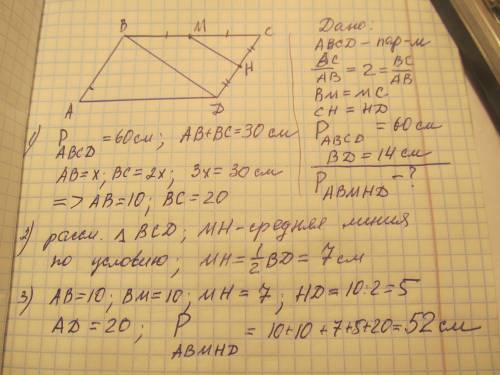 B M C
H
A D
Дано:
ABCD – пар-м
BC/AB = 2 = BC/AB
BM = MC
CH = HD
P ABCD = 60 см
BD = 14 см
P ABMHD – ?
1) P ABCD = 60 см; AB + BC = 30 см
AB = x; BC = 2x; 3x = 30 см
=> AB = 10; BC = 20
2) рассм. Δ BCD; MH – средняя линия
по условию; MH = 1/2 BD = 7 см
3) AB = 10; BM = 10; MH = 7; HD = 10:2 = 5
AD = 20; P ABMHD = 10 + 10 + 7 + 5 + 20 = 52 см